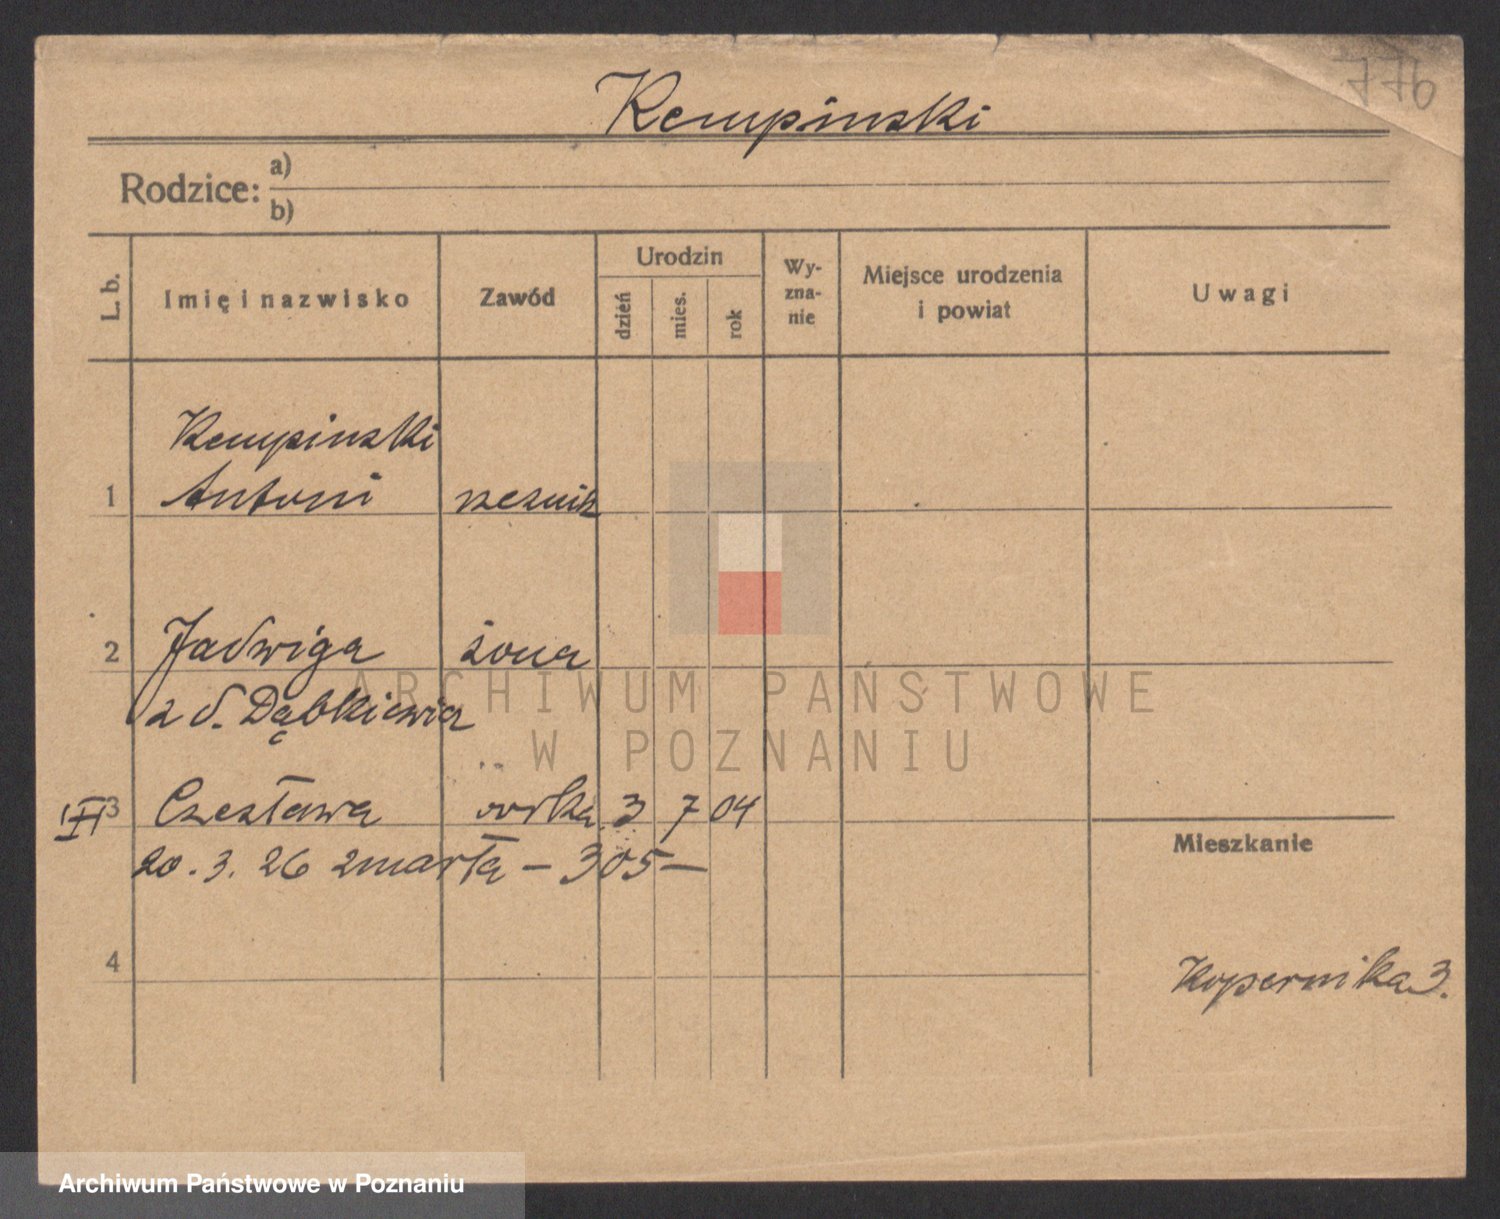 776
Kempinski
Rodzice: a)
b)
L. b. Imię i nazwisko Zawód Urodzin dzień mies. rok Wy-zna-nie Miejsce urodzenia i powiat Uwagi
Kempinski
1 Antoni rzeznik
2 Jadwiga żona
z d. Dąbkiewicz
3 Czesława córka 3 7 04
20. 3. 26 zmarła – 305 –
Mieszkanie
4
Kopernika 3.
ARCHIWUM PAŃSTWOWE
W POZNANIU
Archiwum Państwowe w Poznaniu